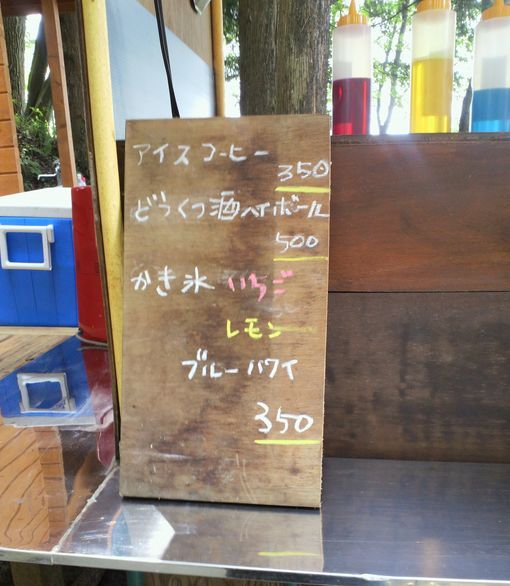 アイスコーヒー
350
どうくつ酒ハイボール
500
かき氷 いちご
レモン
ブルーハワイ
350